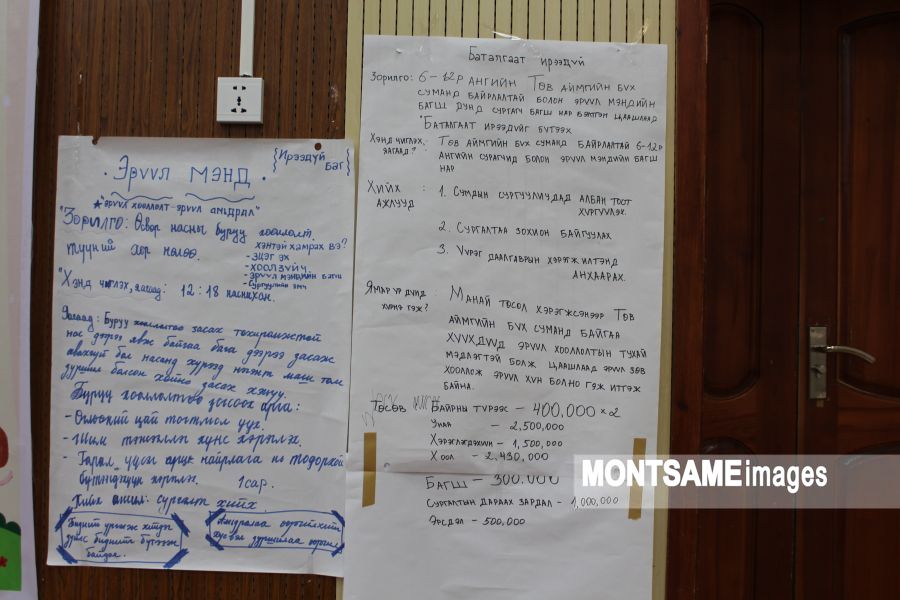 {Ирээдүй
Баг}
· Эрүүл мэнд ·
★"Эрүүл хооллолт-эрүүл амьдрал"
"Зорилго: Өсвөр насны буруу хооллолт
түүний хор нөлөө.
хэнтэй хамрах вэ?
- эцэг эх
- хоолзүйч
- эрүүл мэндийн багш
- сургуулийн эмч
"Хэнд чиглэх, яагаад: 12:18 наснихан.
Яагаад: Буруу хооллолтоо засах тохиромжтой
нас дээрээ явж байгаа бага дээрээ засаж
авахгүй бол насанд хүрээд нэгэнт маш том
дуршил болсон хойно засах хэцүү.
Буруу хооллолтоо зогсоох арга:
- Өглөөний цай тогтмол уух.
- Шим тэжээлт хүнс хэрэглэх.
- Гарал үүсэл орц найрлага нь тодорхой
бүтээгдэхүүн хэрэглэх. 1 сар.
Хийх ажил: сургалт хийх.
Баталгаат ирээдүй
Зорилго: 6-12р ангийн Төв аймгийн бүх
суманд байрлалтай болон эрүүл мэндийн
багш дунд сургагч багш нар бэлтгэн цаашлаад
"Баталгаат ирээдүйг бүтээх
Хэнд чиглэх, яагаад? : Төв аймгийн бүх суманд байрлалтай 6-12р
ангийн сурагчид болон эрүүл мэндийн багш
нар
Хийх ажлууд : 1. Сумдын сургуулиудад албан тоот
хүргүүлэх.
2. Сургалтаа зохион байгуулах
3. Үүрэг даалгаврын хэрэгжилтэнд
анхаарах.
Ямар үр дүнд хүрнэ гэж? : Манай төсөл хэрэгжсэнээр Төв
аймгийн бүх суманд байгаа
хүүхдүүд эрүүл хооллолтын тухай
мэдлэгтэй болж цаашлаад эрүүл зөв
хооллож эрүүл хүн болно гэж итгэж
байна.
Төсөв : Байрны түрээс - 400,000 ×2
Унаа - 2,500,000
Хэрэглэгдэхүүн - 1,500,000
Хоол - 2,430,000
Багш - 300.000
Сургалтын дараах зардал - 1,000,000
Эрсдэл - 500,000
MONTSAME images